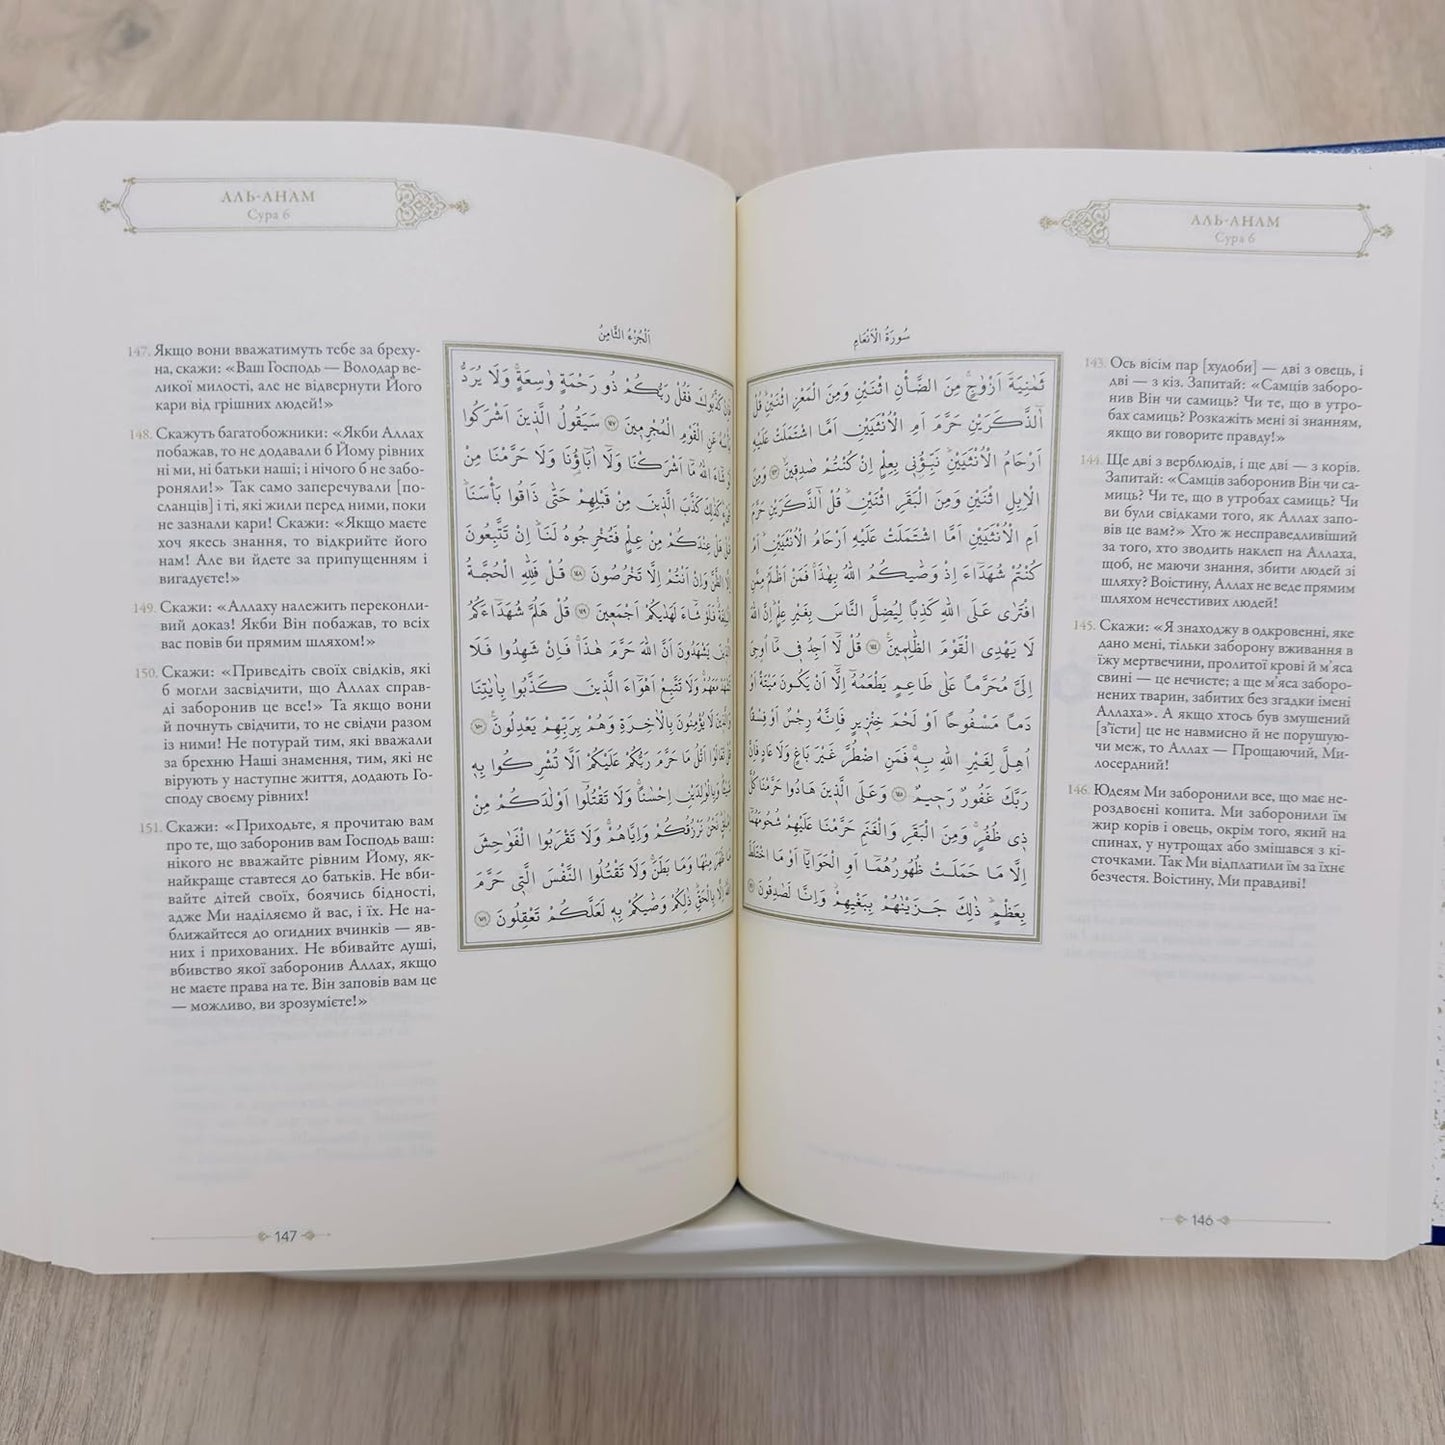 АЛЬ-АНАМ
Сура 6
سُورَةُ الْاَنْعَامِ
ثَمٰنِيَةَ اَزْوَاجٍۚ مِنَ الضَّأْنِ اثْنَيْنِ وَمِنَ الْمَعْزِ اثْنَيْنِۜ قُلْ
آٰلذَّكَرَيْنِ حَرَّمَ اَمِ الْاُنْثَيَيْنِ اَمَّا اشْتَمَلَتْ عَلَيْهِ
اَرْحَامُ الْاُنْثَيَيْنِۜ نَبِّؤُ۫نٖي بِعِلْمٍ اِنْ كُنْتُمْ صَادِقٖينَۙ ﴿١٤٣﴾ وَمِنَ
الْاِبِلِ اثْنَيْنِ وَمِنَ الْبَقَرِ اثْنَيْنِۜ قُلْ آٰلذَّكَرَيْنِ حَرَّمَ
اَمِ الْاُنْثَيَيْنِ اَمَّا اشْتَمَلَتْ عَلَيْهِ اَرْحَامُ الْاُنْثَيَيْنِۜ اَمْ
كُنْتُمْ شُهَدَٓاءَ اِذْ وَصّٰيكُمُ اللّٰهُ بِهٰذَاۚ فَمَنْ اَظْلَمُ مِمَّنِ
افْتَرٰى عَلَى اللّٰهِ كَذِبًا لِيُضِلَّ النَّاسَ بِغَيْرِ عِلْمٍۜ اِنَّ اللّٰهَ
لَا يَهْدِي الْقَوْمَ الظَّالِمٖينَ۟ ﴿١٤٤﴾ قُلْ لَٓا اَجِدُ فٖي مَٓا اُوحِيَ
اِلَيَّ مُحَرَّمًا عَلٰى طَاعِمٍ يَطْعَمُهُٓ اِلَّٓا اَنْ يَكُونَ مَيْتَةً اَوْ
دَمًا مَسْفُوحًا اَوْ لَحْمَ خِنْزٖيرٍ فَاِنَّهُ رِجْسٌ اَوْ فِسْقًا
اُهِلَّ لِغَيْرِ اللّٰهِ بِهٖۚ فَمَنِ اضْطُرَّ غَيْرَ بَاغٍ وَلَا عَادٍ فَاِنَّ
رَبَّكَ غَفُورٌ رَحٖيمٌ ﴿١٤٥﴾ وَعَلَى الَّذٖينَ هَادُوا حَرَّمْنَا كُلَّ
ذٖي ظُفُرٍۚ وَمِنَ الْبَقَرِ وَالْغَنَمِ حَرَّمْنَا عَلَيْهِمْ شُحُومَهُمَٓا
اِلَّا مَا حَمَلَتْ ظُهُورُهُمَٓا اَوِ الْحَوَايَٓا اَوْ مَا اخْتَلَطَ
بِعَظْمٍۜ ذٰلِكَ جَزَيْنَاهُمْ بِبَغْيِهِمْۘ وَاِنَّا لَصَادِقُونَ ﴿١٤٦﴾
143. Ось вісім пар [худоби] — дві з овець, і
дві — з кіз. Запитай: «Самців заборо-
нив Він чи самиць? Чи те, що в утро-
бах самиць? Розкажіть мені зі знанням,
якщо ви говорите правду!»
144. Ще дві з верблюдів, і ще дві — з корів.
Запитай: «Самців заборонив Він чи са-
миць? Чи те, що в утробах самиць? Чи
ви були свідками того, як Аллах запо-
вів це вам?» Хто ж несправедливіший
за того, хто зводить наклеп на Аллаха,
щоб, не маючи знання, збити людей зі
шляху? Воістину, Аллах не веде прямим
шляхом нечестивих людей!
145. Скажи: «Я знаходжу в одкровенні, яке
дано мені, тільки заборону вживання в
їжу мертвечини, пролитої крові й м’яса
свині — це нечисте; а ще м’яса заборо-
нених тварин, забитих без згадки імені
Аллаха». А якщо хтось був змушений
[з’їсти] це не навмисно й не порушую-
чи меж, то Аллах — Прощаючий, Ми-
лосердний!
146. Юдеям Ми заборонили все, що має не-
роздвоєні копита. Ми заборонили їм
жир корів і овець, окрім того, який на
спинах, у нутрощах або змішався з кі-
сточками. Так Ми відплатили їм за їхнє
безчестя. Воістину, Ми правдиві!
146
АЛЬ-АНАМ
Сура 6
اَلْجُزْءُ الثَّامِنُ
فَاِنْ كَذَّبُوكَ فَقُلْ رَبُّكُمْ ذُو رَحْمَةٍ وَاسِعَةٍۚ وَلَا يُرَدُّ
بَأْسُهُ عَنِ الْقَوْمِ الْمُجْرِمٖينَ ﴿١٤٧﴾ سَيَقُولُ الَّذٖينَ اَشْرَكُوا
لَوْ شَٓاءَ اللّٰهُ مَٓا اَشْرَكْنَا وَلَٓا اٰبَٓاؤُ۬نَا وَلَا حَرَّمْنَا مِنْ
شَيْءٍۜ كَذٰلِكَ كَذَّبَ الَّذٖينَ مِنْ قَبْلِهِمْ حَتّٰى ذَاقُوا بَأْسَنَاۜ
قُلْ هَلْ عِنْدَكُمْ مِنْ عِلْمٍ فَتُخْرِجُوهُ لَنَاۜ اِنْ تَتَّبِعُونَ
اِلَّا الظَّنَّ وَاِنْ اَنْتُمْ اِلَّا تَخْرُصُونَ ﴿١٤٨﴾ قُلْ فَلِلّٰهِ الْحُجَّةُ
الْبَالِغَةُۚ فَلَوْ شَٓاءَ لَهَدٰيكُمْ اَجْمَعٖينَ ﴿١٤٩﴾ قُلْ هَلُمَّ شُهَدَٓاءَكُمُ
الَّذٖينَ يَشْهَدُونَ اَنَّ اللّٰهَ حَرَّمَ هٰذَاۚ فَاِنْ شَهِدُوا فَلَا
تَشْهَدْ مَعَهُمْۚ وَلَا تَتَّبِعْ اَهْوَٓاءَ الَّذٖينَ كَذَّبُوا بِاٰيَاتِنَا
وَالَّذٖينَ لَا يُؤْمِنُونَ بِالْاٰخِرَةِ وَهُمْ بِرَبِّهِمْ يَعْدِلُونَ۟ ﴿١٥٠﴾
قُلْ تَعَالَوْا اَتْلُ مَا حَرَّمَ رَبُّكُمْ عَلَيْكُمْ اَلَّا تُشْرِكُوا بِهٖ
شَيْـًٔا وَبِالْوَالِدَيْنِ اِحْسَانًاۚ وَلَا تَقْتُلُٓوا اَوْلَادَكُمْ مِنْ
اِمْلَاقٍۜ نَحْنُ نَرْزُقُكُمْ وَاِيَّاهُمْۚ وَلَا تَقْرَبُوا الْفَوَاحِشَ
مَا ظَهَرَ مِنْهَا وَمَا بَطَنَۚ وَلَا تَقْتُلُوا النَّفْسَ الَّتٖي حَرَّمَ
اللّٰهُ اِلَّا بِالْحَقِّۜ ذٰلِكُمْ وَصّٰيكُمْ بِهٖ لَعَلَّكُمْ تَعْقِلُونَ ﴿١٥١﴾
147. Якщо вони вважатимуть тебе за бреху-
на, скажи: «Ваш Господь — Володар ве-
ликої милості, але не відвернути Його
кари від грішних людей!»
148. Скажуть багатобожники: «Якби Аллах
побажав, то не додавали б Йому рівних
ні ми, ні батьки наші; і нічого б не забо-
роняли!» Так само заперечували [по-
сланців] і ті, які жили перед ними, поки
не зазнали кари! Скажи: «Якщо маєте
хоч якесь знання, то відкрийте його
нам! Але ви йдете за припущенням і
вигадуєте!»
149. Скажи: «Аллаху належить переконли-
вий доказ! Якби Він побажав, то всіх
вас повів би прямим шляхом!»
150. Скажи: «Приведіть своїх свідків, які
б могли засвідчити, що Аллах справ-
ді заборонив це все!» Та якщо вони
й почнуть свідчити, то не свідчи разом
із ними! Не потурай тим, які вважали
за брехню Наші знамення, тим, які не
вірують у наступне життя, додають Го-
споду своєму рівних!
151. Скажи: «Приходьте, я прочитаю вам
про те, що заборонив вам Господь ваш:
нікого не вважайте рівним Йому, як-
найкраще ставтеся до батьків. Не вби-
вайте дітей своїх, боячись бідності,
адже Ми наділяємо й вас, і їх. Не на-
ближайтеся до огидних вчинків — яв-
них і прихованих. Не вбивайте душі,
вбивство якої заборонив Аллах, якщо
не маєте права на те. Він заповів вам це
— можливо, ви зрозумієте!»
147